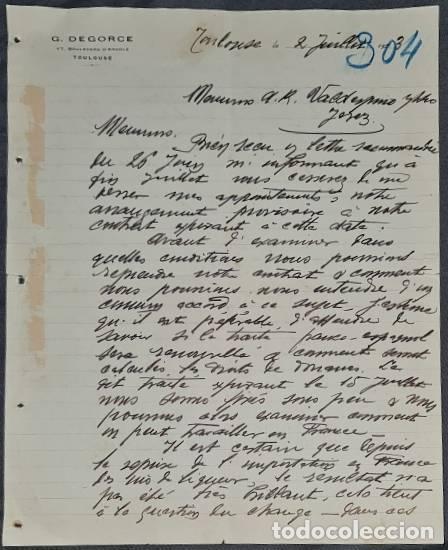 G. DEGORCE
17, BOULEVARD D'ARCOLE
TOULOUSE
Toulouse le 2 Juillet 3
304
Messieurs A. R. Valdespino y Hno
Jerez
Messieurs.
Bien reçu v/ lettre recommandée
du 26 Juin m'informant qu'à
fin Juillet vous cesserez de me
verser mes appointements, notre
arrangement provisoire à notre
contrat expirant à cette date.
Avant d'examiner dans
quelles conditions nous pourrions
reprendre notre contrat & comment
nous pourrions nous entendre d'un
commun accord à ce sujet, j'estime
qu'il est préférable d'attendre de
savoir si le traité franco-espagnol
sera renouvelé & comment seront
les droits de douanes. Le
dit traité expirant le 15 juillet
nous sommes près sous peu & nous
pourrons alors examiner comment
on peut travailler en France
Il est certain que depuis
la reprise de l'importation en France
des vins de liqueur, le résultat n'a
pas été très brillant, cela tient
à la question du change — dans ces
todocoleccion